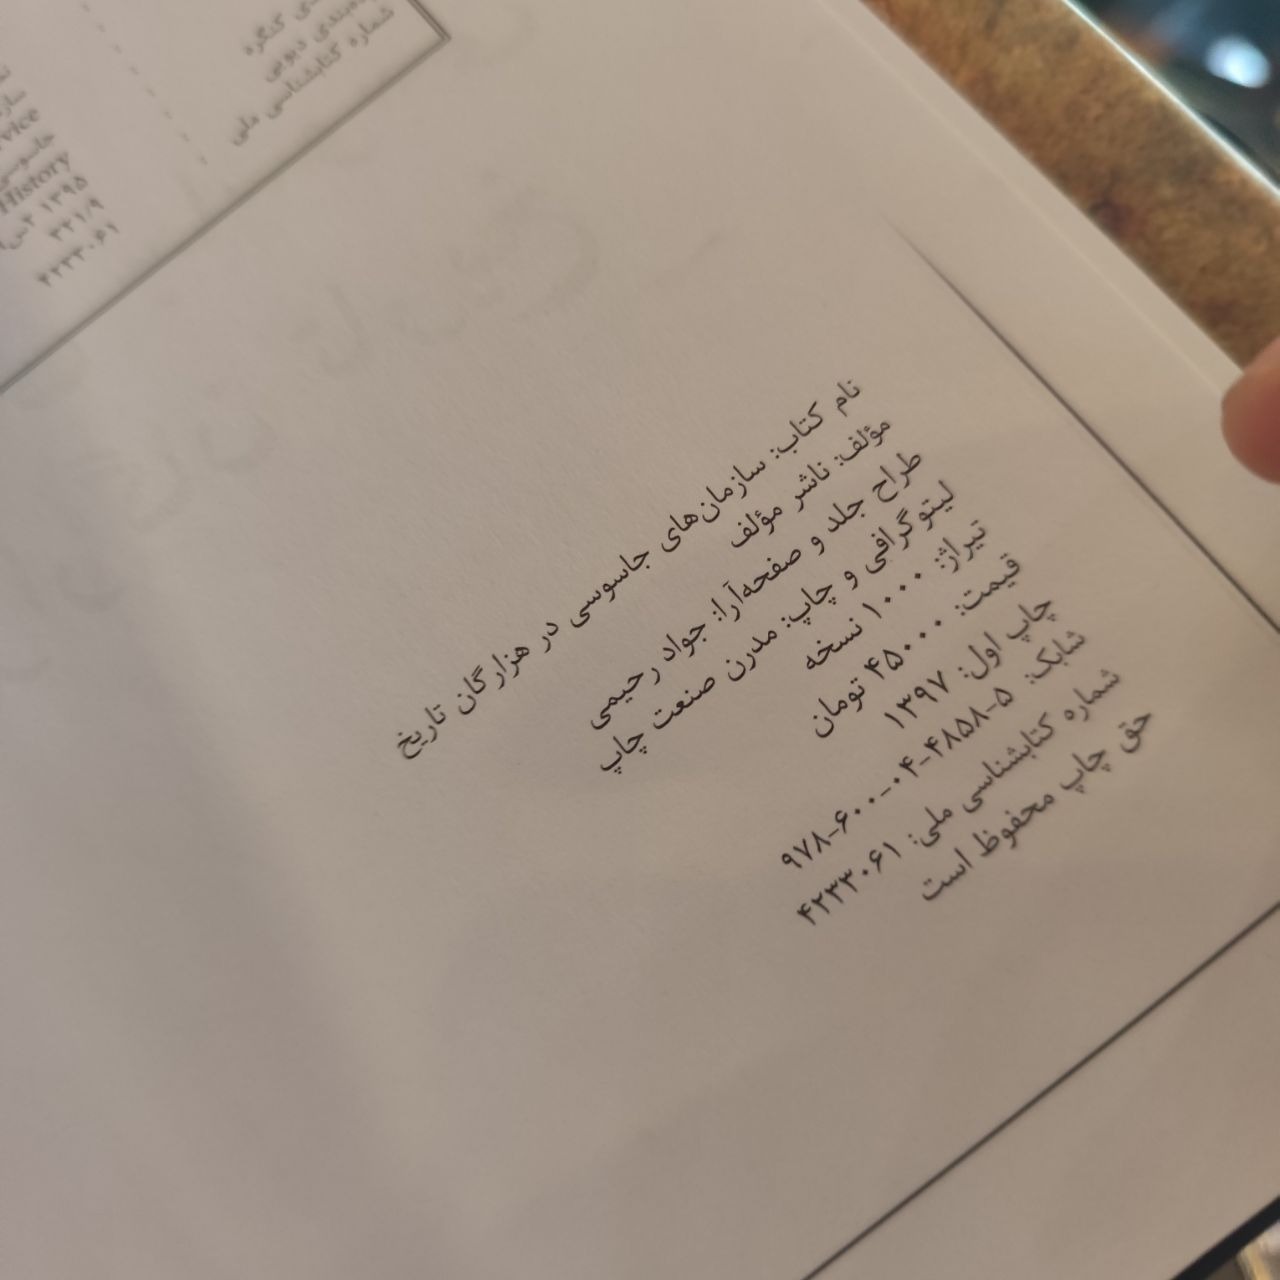 کنگره
دیویی
شماره کتابشناسی ملی
History
۱۳۹۵
۳۲۱/۹
۴۲۳۳۰۶۱
نام کتاب: سازمان‌های جاسوسی در هزارگان تاریخ
مؤلف: ناشر مؤلف
طراح جلد و صفحه‌آرا: جواد رحیمی
لیتوگرافی و چاپ: مدرن صنعت چاپ
تیراژ: ۱۰۰۰ نسخه
قیمت: ۴۵۰۰۰ تومان
چاپ اول: ۱۳۹۷
شابک: ۵-۴۸۵۸-۰۴-۶۰۰-۹۷۸
شماره کتابشناسی ملی: ۴۲۳۳۰۶۱
حق چاپ محفوظ است